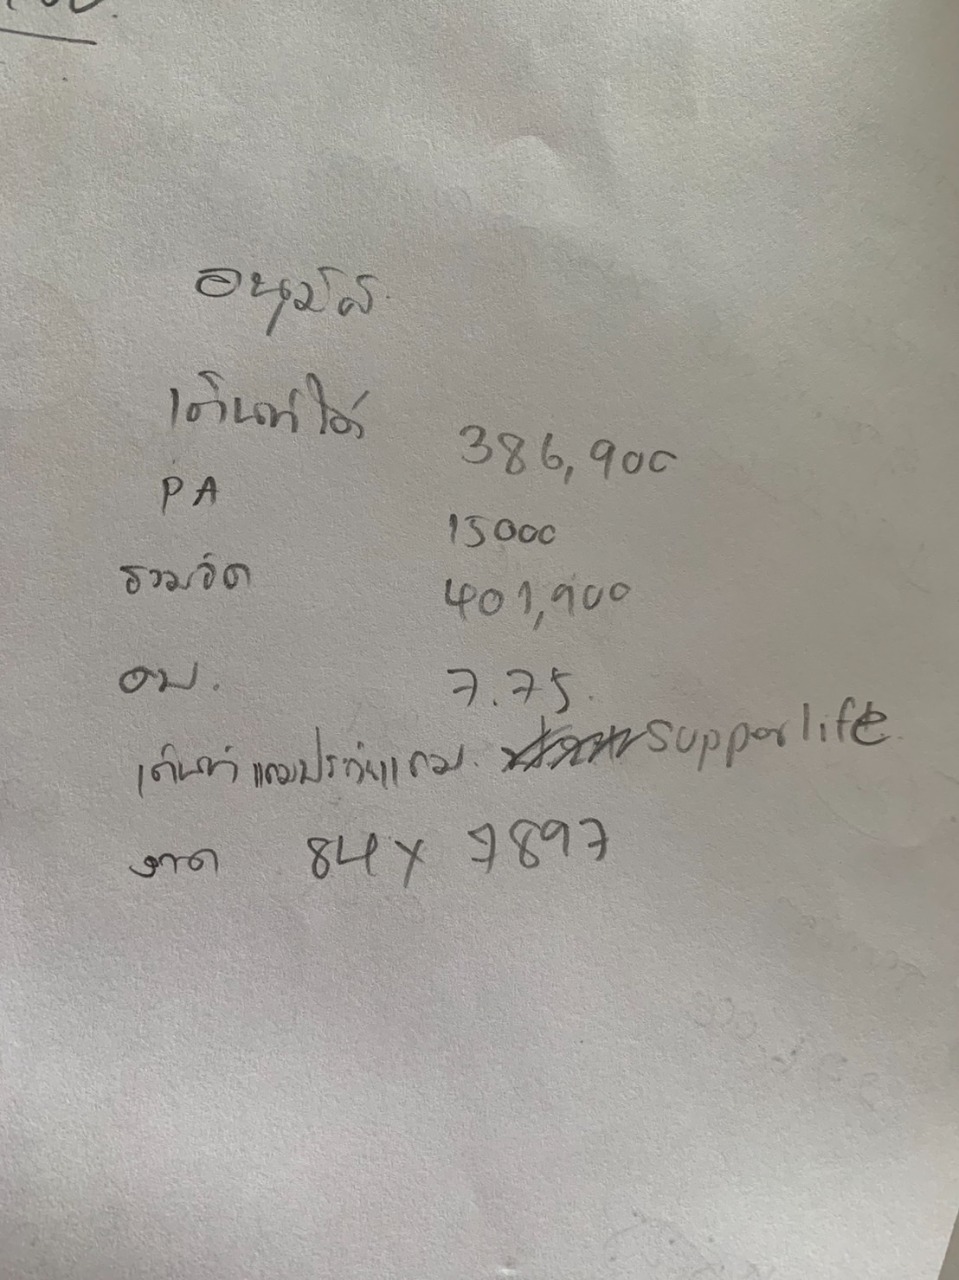 อนุมัติ
เต็นท์ได้ 386,900
PA 15000
รวมจัด 401,900
ดบ. 7.75.
เต้นท์ แถมประกันแถม. supporlife.
งวด 84x 7897